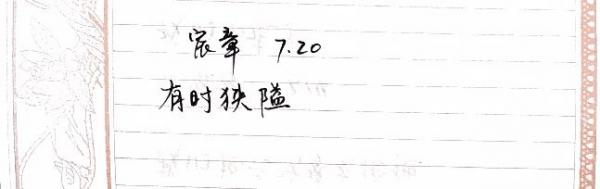 宸章 7.20
有时狭隘